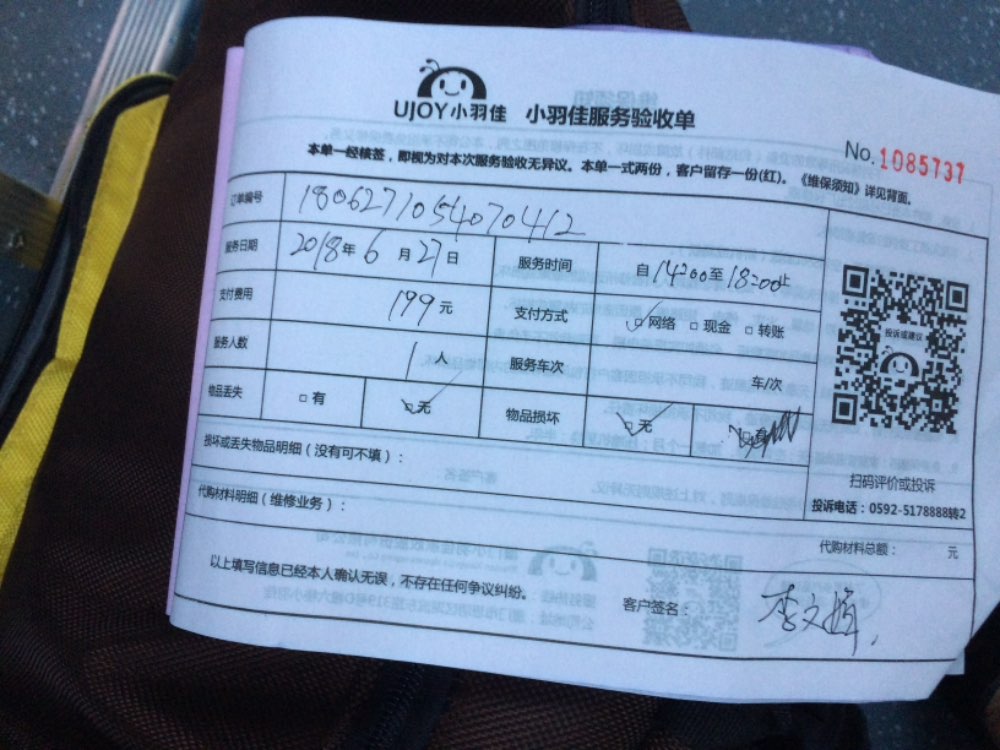 UJOY小羽佳 小羽佳服务验收单
No. 1085737
本单一经核签，即视为对本次服务验收无异议。本单一式两份，客户留存一份(红)。《维保须知》详见背面。
订单编号 1806271054070412
服务日期 2018年6月27日 服务时间 自14:00至18:00止
支付费用 199元 支付方式 ☑网络 □现金 □转账
服务人数 1人 服务车次 车/次
物品丢失 □有 ☑无 物品损坏 □无
投诉或建议
损坏或丢失物品明细（没有可不填）：
扫码评价或投诉
投诉电话：0592-5178888转2
代购材料明细（维修业务）：
代购材料总额： 元
以上填写信息已经本人确认无误，不存在任何争议纠纷。
客户签名： 李文